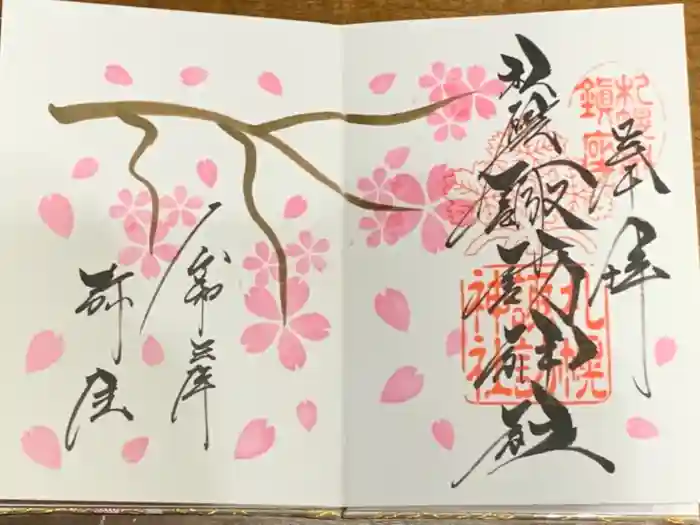 奉拝
札幌
鎮座
札幌諏訪神社
札幌
諏訪
神社
令和三年
弥生